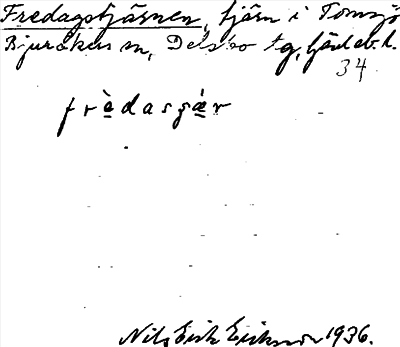 Fredagstjärnen, tjärn i Tomsjö
Bjuråkers sn, Delsbo tg, Gävleb. l.
34
frèdasgǽr
Nils Erik Eriksson 1936.